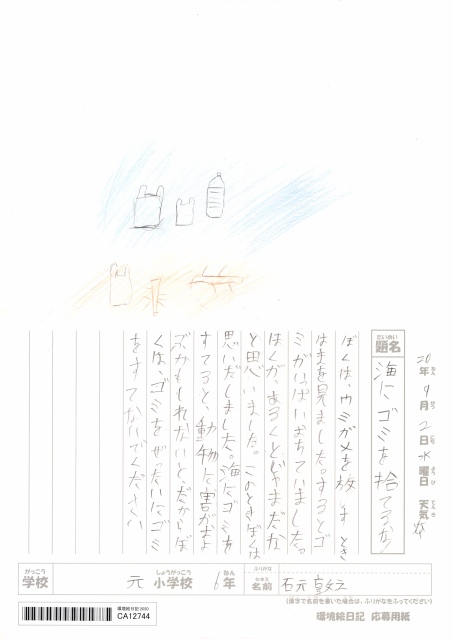 20年9月2日水曜日 天気
だいめい
題名
海にゴミを捨てるな
ぼくは、ウミガメを放すとき
はまを見ました。するとゴ
ミがいっぱいおちていました。
ぼくが、あるくとじゃまだな
と思いました。このときぼくは
思いだしました。海にゴミを
すてると、動物に害がおよ
ぶかもしれないと、だからぼ
くは、ゴミをぜったいにゴミ
をすてないでください。
がっこう
学校
元
しょうがっこう
小学校
6年
ふりがな
なまえ
名前
石元
(漢字で名前を書いた場合は、ふりがなをふってください)
環境絵日記2020
CA12744
環境絵日記 応募用紙